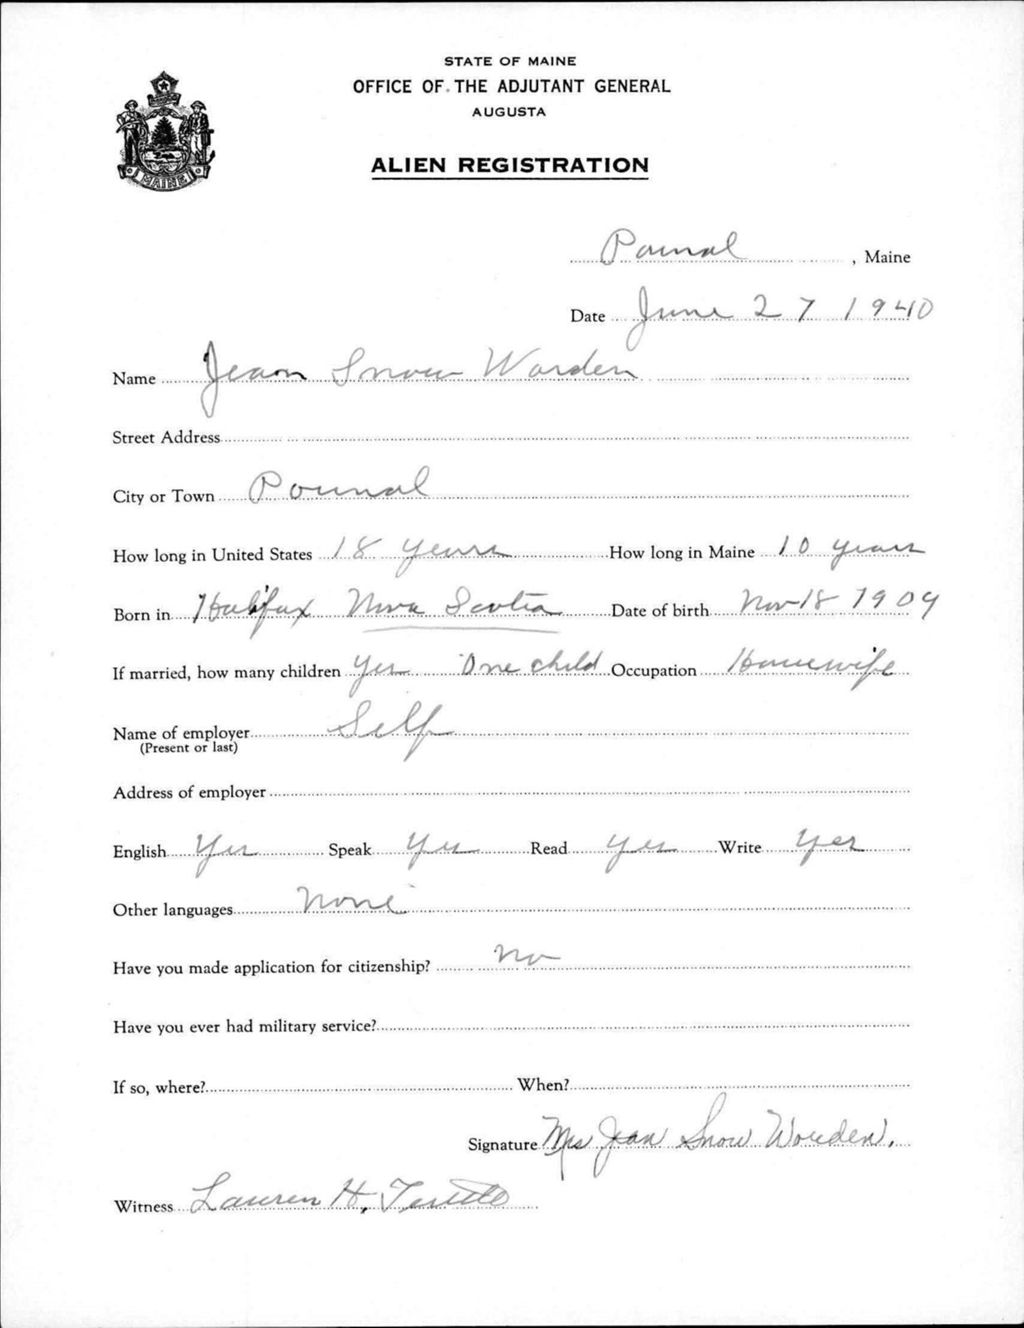 STATE OF MAINE
OFFICE OF THE ADJUTANT GENERAL
AUGUSTA
ALIEN REGISTRATION
MAINE
Pownal, Maine
Date June 27 1940
Name Jean Snow Warden
Street Address
City or Town Pownal
How long in United States 18 years How long in Maine 10 years
Born in Halifax Nova Scotia Date of birth Nov 18 1909
If married, how many children Yes One child Occupation Housewife
Name of employer Self
(Present or last)
Address of employer
English Yes Speak Yes Read Yes Write Yes
Other languages None
Have you made application for citizenship? No
Have you ever had military service?
If so, where? When?
Signature Mrs Jean Snow
Witness Lauren H.